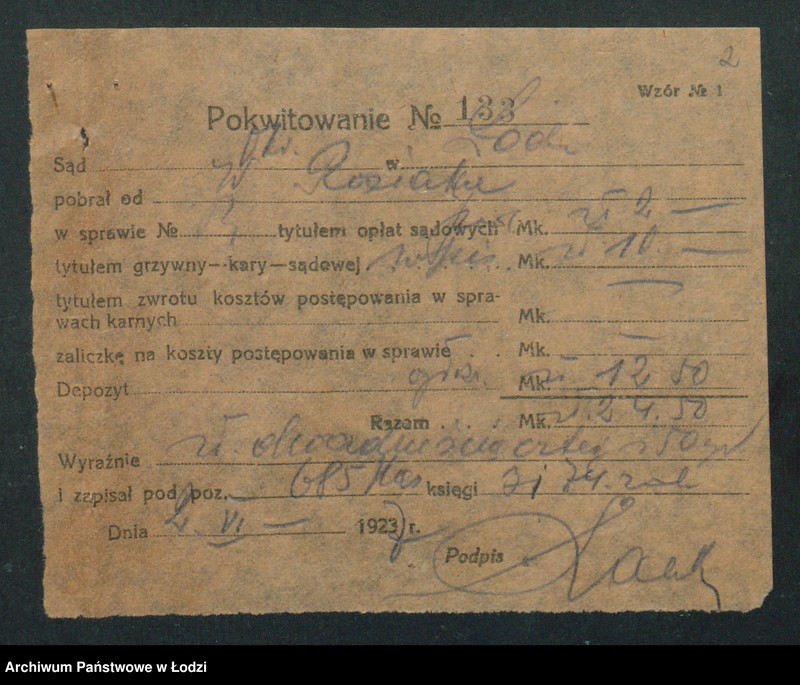 2
Wzór № 1
Pokwitowanie № 133
Sąd Okr. w Łodzi
pobrał od W Rosiaka
w sprawie № tytułem opłat sądowych Mk. zł. 2 —
tytułem grzywny—kary—sądowej wpis Mk. zł 10. —
tytułem zwrotu kosztów postępowania w spra-
wach karnych Mk. —
zaliczkę na koszty postępowania w sprawie . . Mk. —
Depozyt Mk. zł 12 50
Razem . . . . Mk. zł. 24.50
Wyraźnie zł. dwadzieścia cztery i 50 gr
i zapisał pod poz. 685 księgi
Dnia 2 VI — 1927 r.
Podpis
Archiwum Państwowe w Łodzi